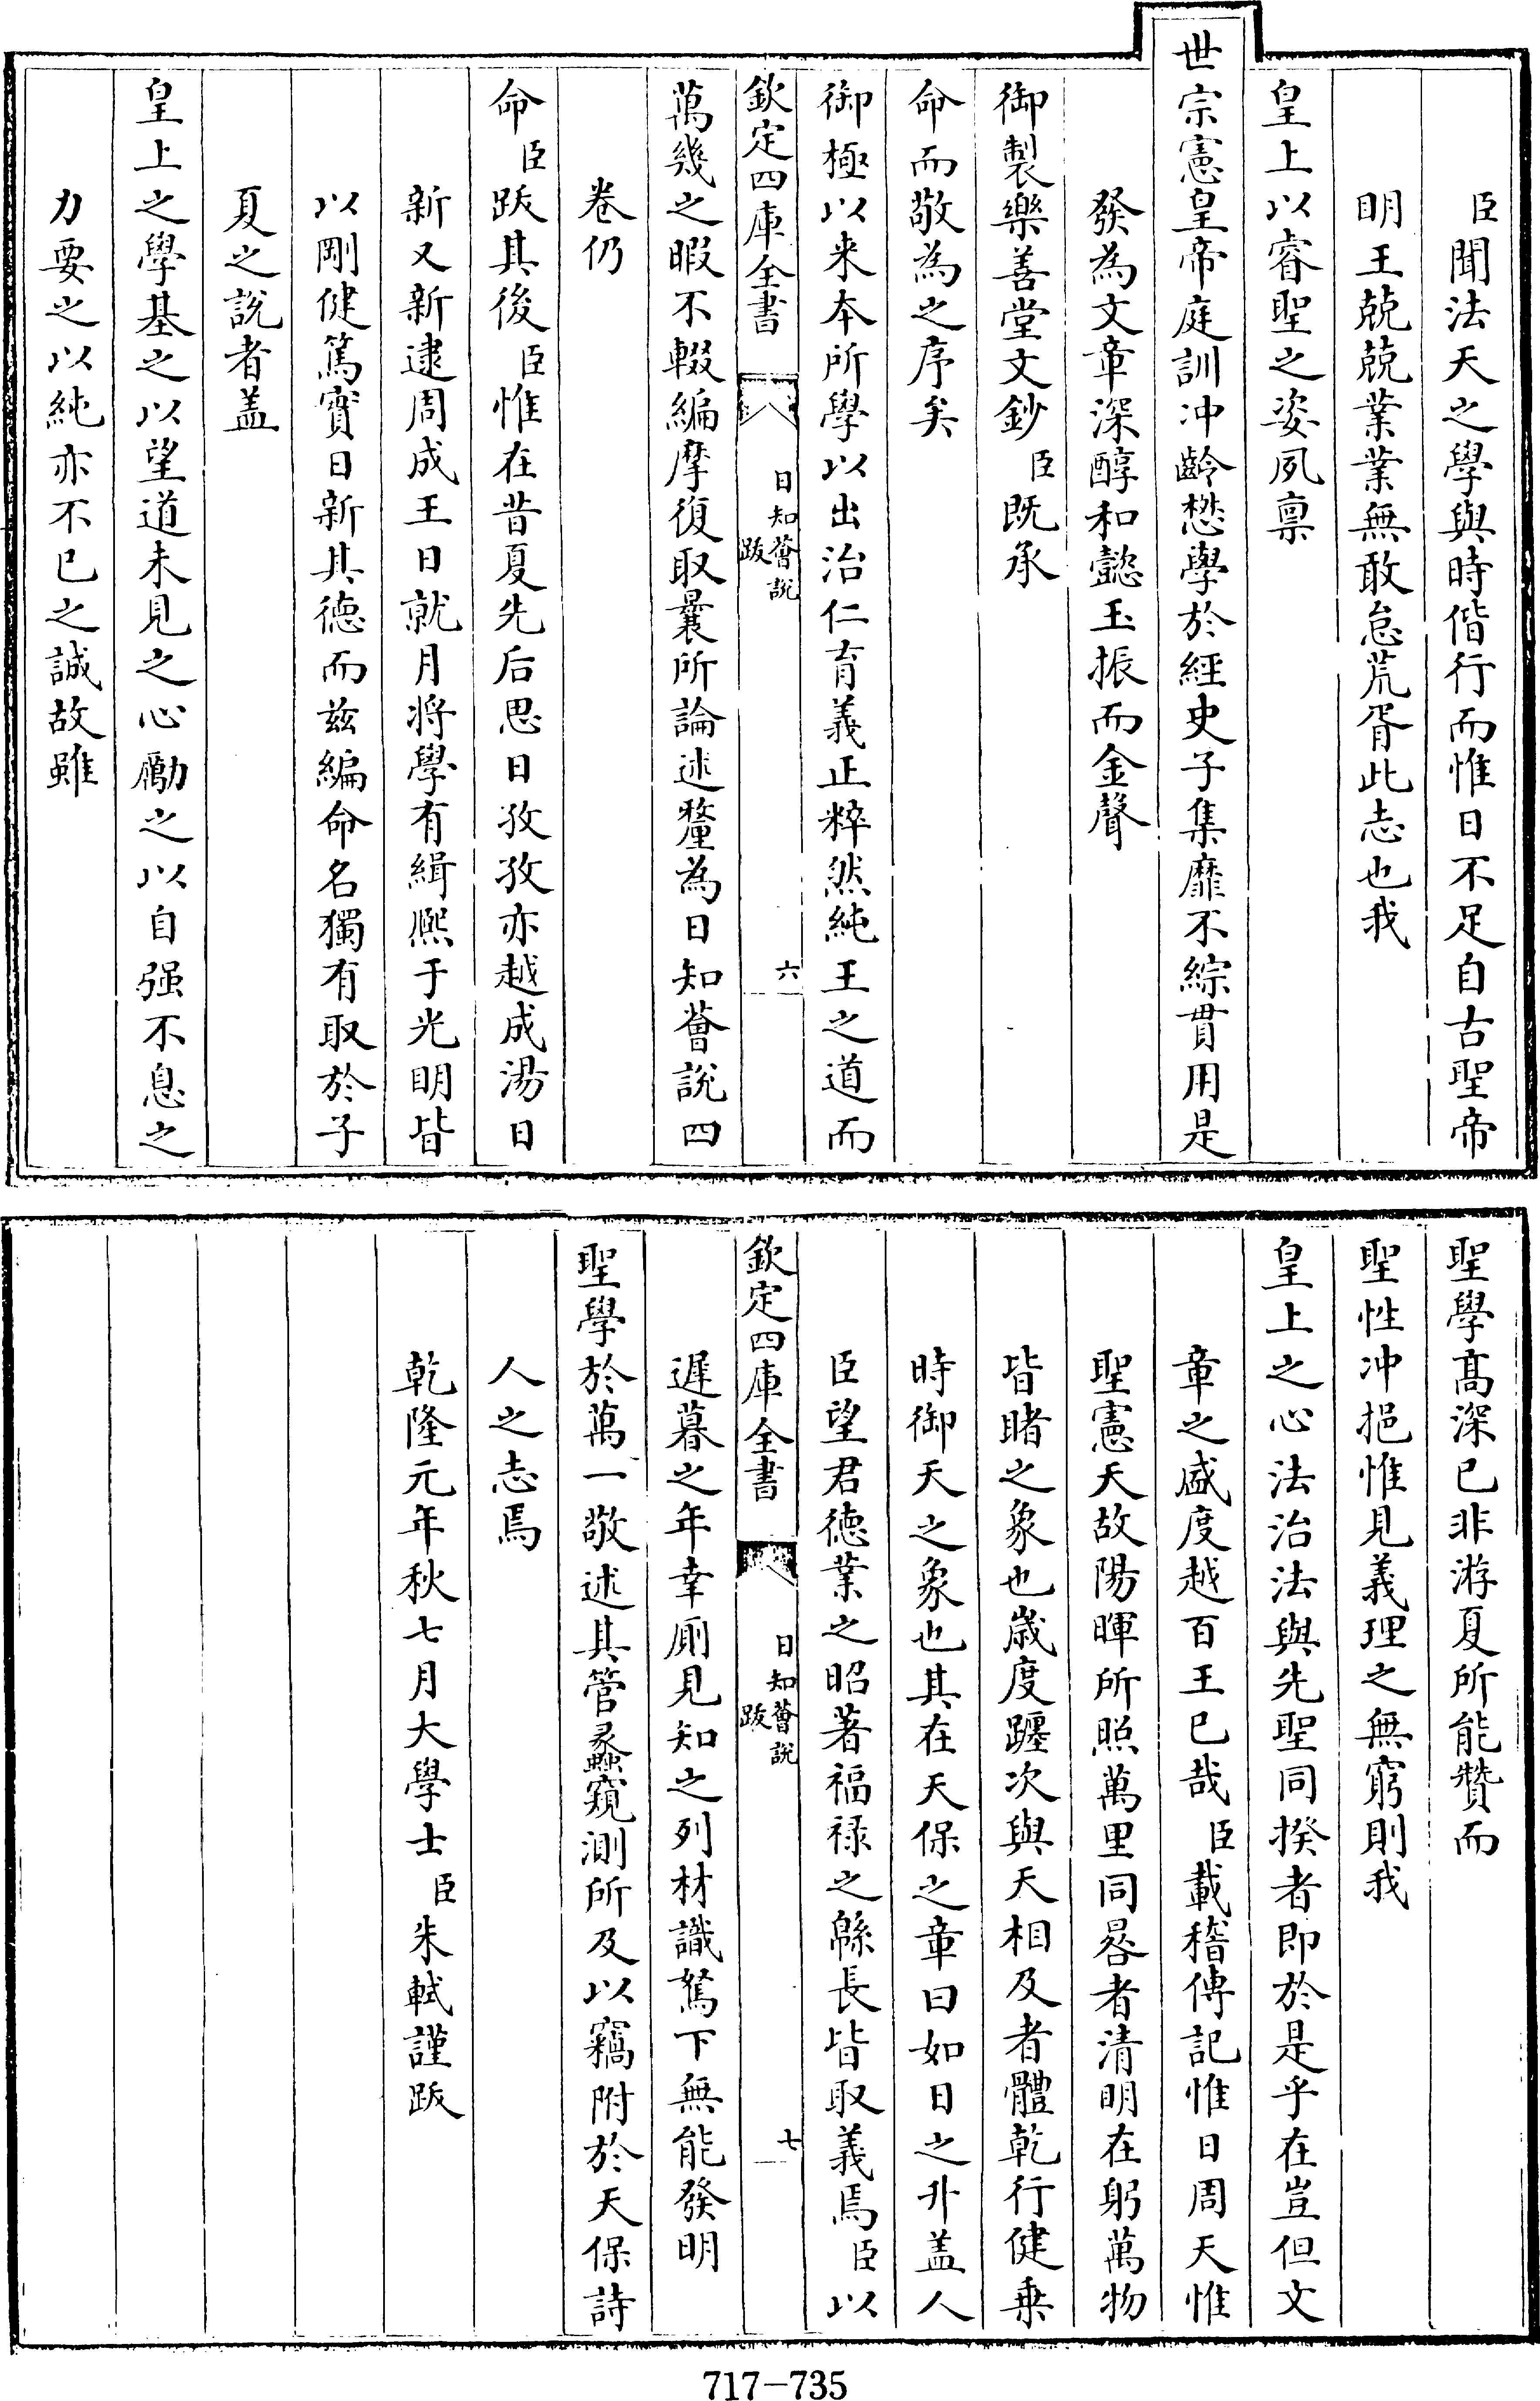 臣聞法天之學與時偕行而惟日不足自古聖帝
明王兢兢業業無敢怠荒胥此志也我
皇上以睿聖之姿夙禀
世宗憲皇帝庭訓冲齡懋學於經史子集靡不綜貫用是
發為文章深醇和懿玉振而金聲
御製樂善堂文鈔臣既承
命而敬為之序矣
御極以来本所學以出治仁育義正粹然純王之道而
欽定四庫全書
日知薈說
跋
六
萬幾之暇不輟編摩復取曩所論述釐為日知薈說四
卷仍
命臣跋其後臣惟在昔夏先后思日孜孜亦越成湯日
新又新逮周成王日就月將學有緝熙于光明皆
以剛健篤實日新其德而兹編命名獨有取於子
夏之說者盖
皇上之學基之以望道未見之心勵之以自强不息之
力要之以純亦不已之誠故雖
聖學髙深已非游夏所能贊而
聖性冲挹惟見義理之無窮則我
皇上之心法治法與先聖同揆者即於是乎在豈但文
章之盛度越百王已哉臣載稽傳記惟日周天惟
聖憲天故陽暉所照萬里同晷者清明在躬萬物
皆睹之象也歲度躔次與天相及者體乾行健乗
時御天之象也其在天保之章曰如日之升盖人
臣望君德業之昭著福禄之緜長皆取義焉臣以
欽定四庫全書
日知薈說
跋
七
遲暮之年幸厠見知之列材識駑下無能發明
聖學於萬一敬述其管蠡窺測所及以竊附於天保詩
人之志焉
乾隆元年秋七月大學士臣朱軾謹跋
717-735